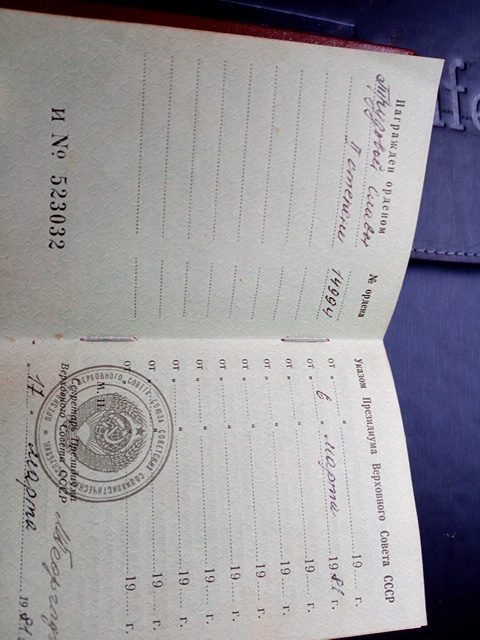 Награжден орденом № ордена
Трудовой Славы
II степени
И № 523032
указом Президиума Верховного Совета СССР
от „ " 19 г.
от „ 6 " марта 1981 г.
от „ " 19 г.
от „ " 19 г.
от „ " 19 г.
от „ " 19 г.
от „ " 19 г.
от „ " 19 г.
от „ " 19 г.
от „ " 19 г.
М. П.
Секретарь Президиума
Верховного Совета СССР
„ 17 " марта 1981 г.